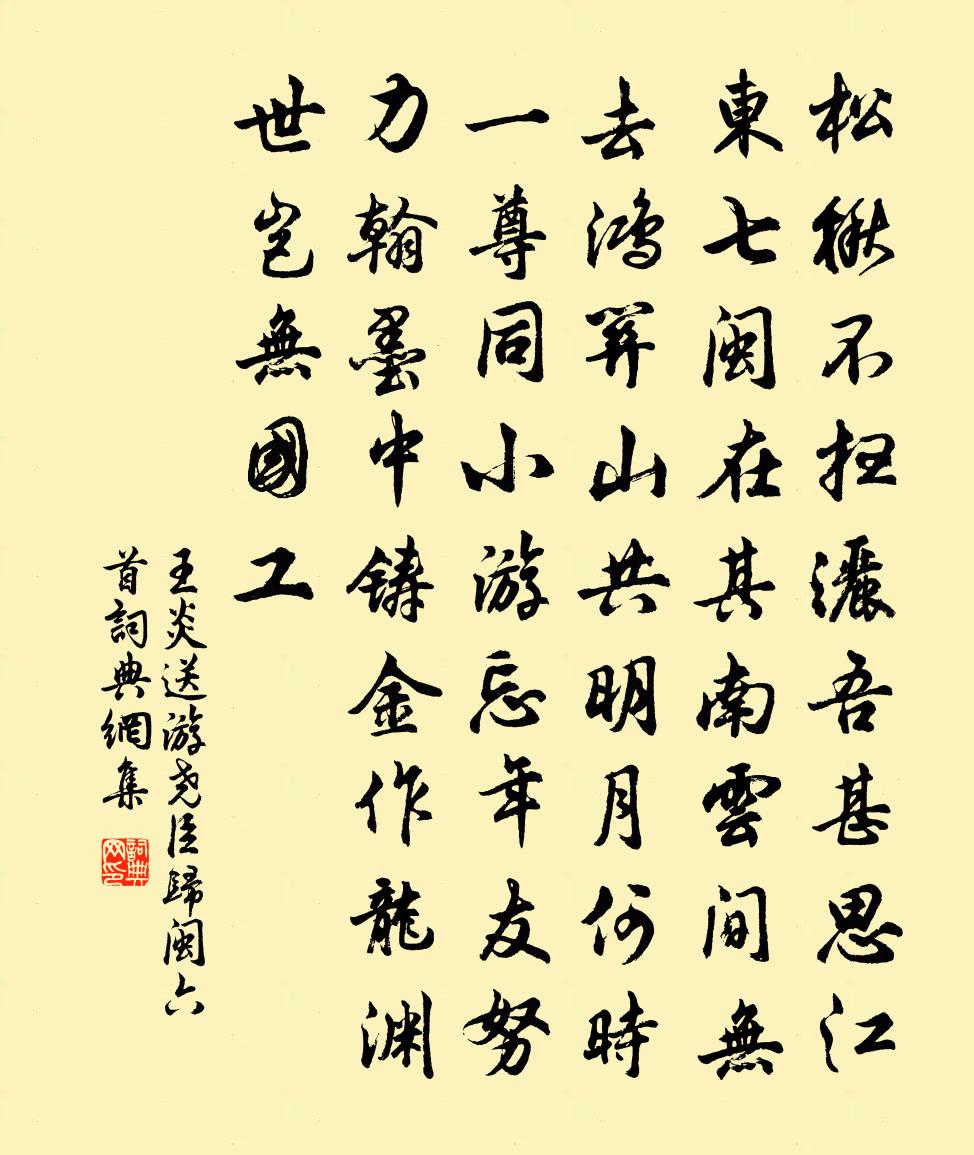 松楸不扫灑吾甚思江
東七閩在其南雲間無
去鴻羿山共明月何時
一尊同小游忘年友努
力翰墨中铸金作龍渊
世岂無國工
王炎送游尧臣歸閩六
首詞典網集
詞典網印